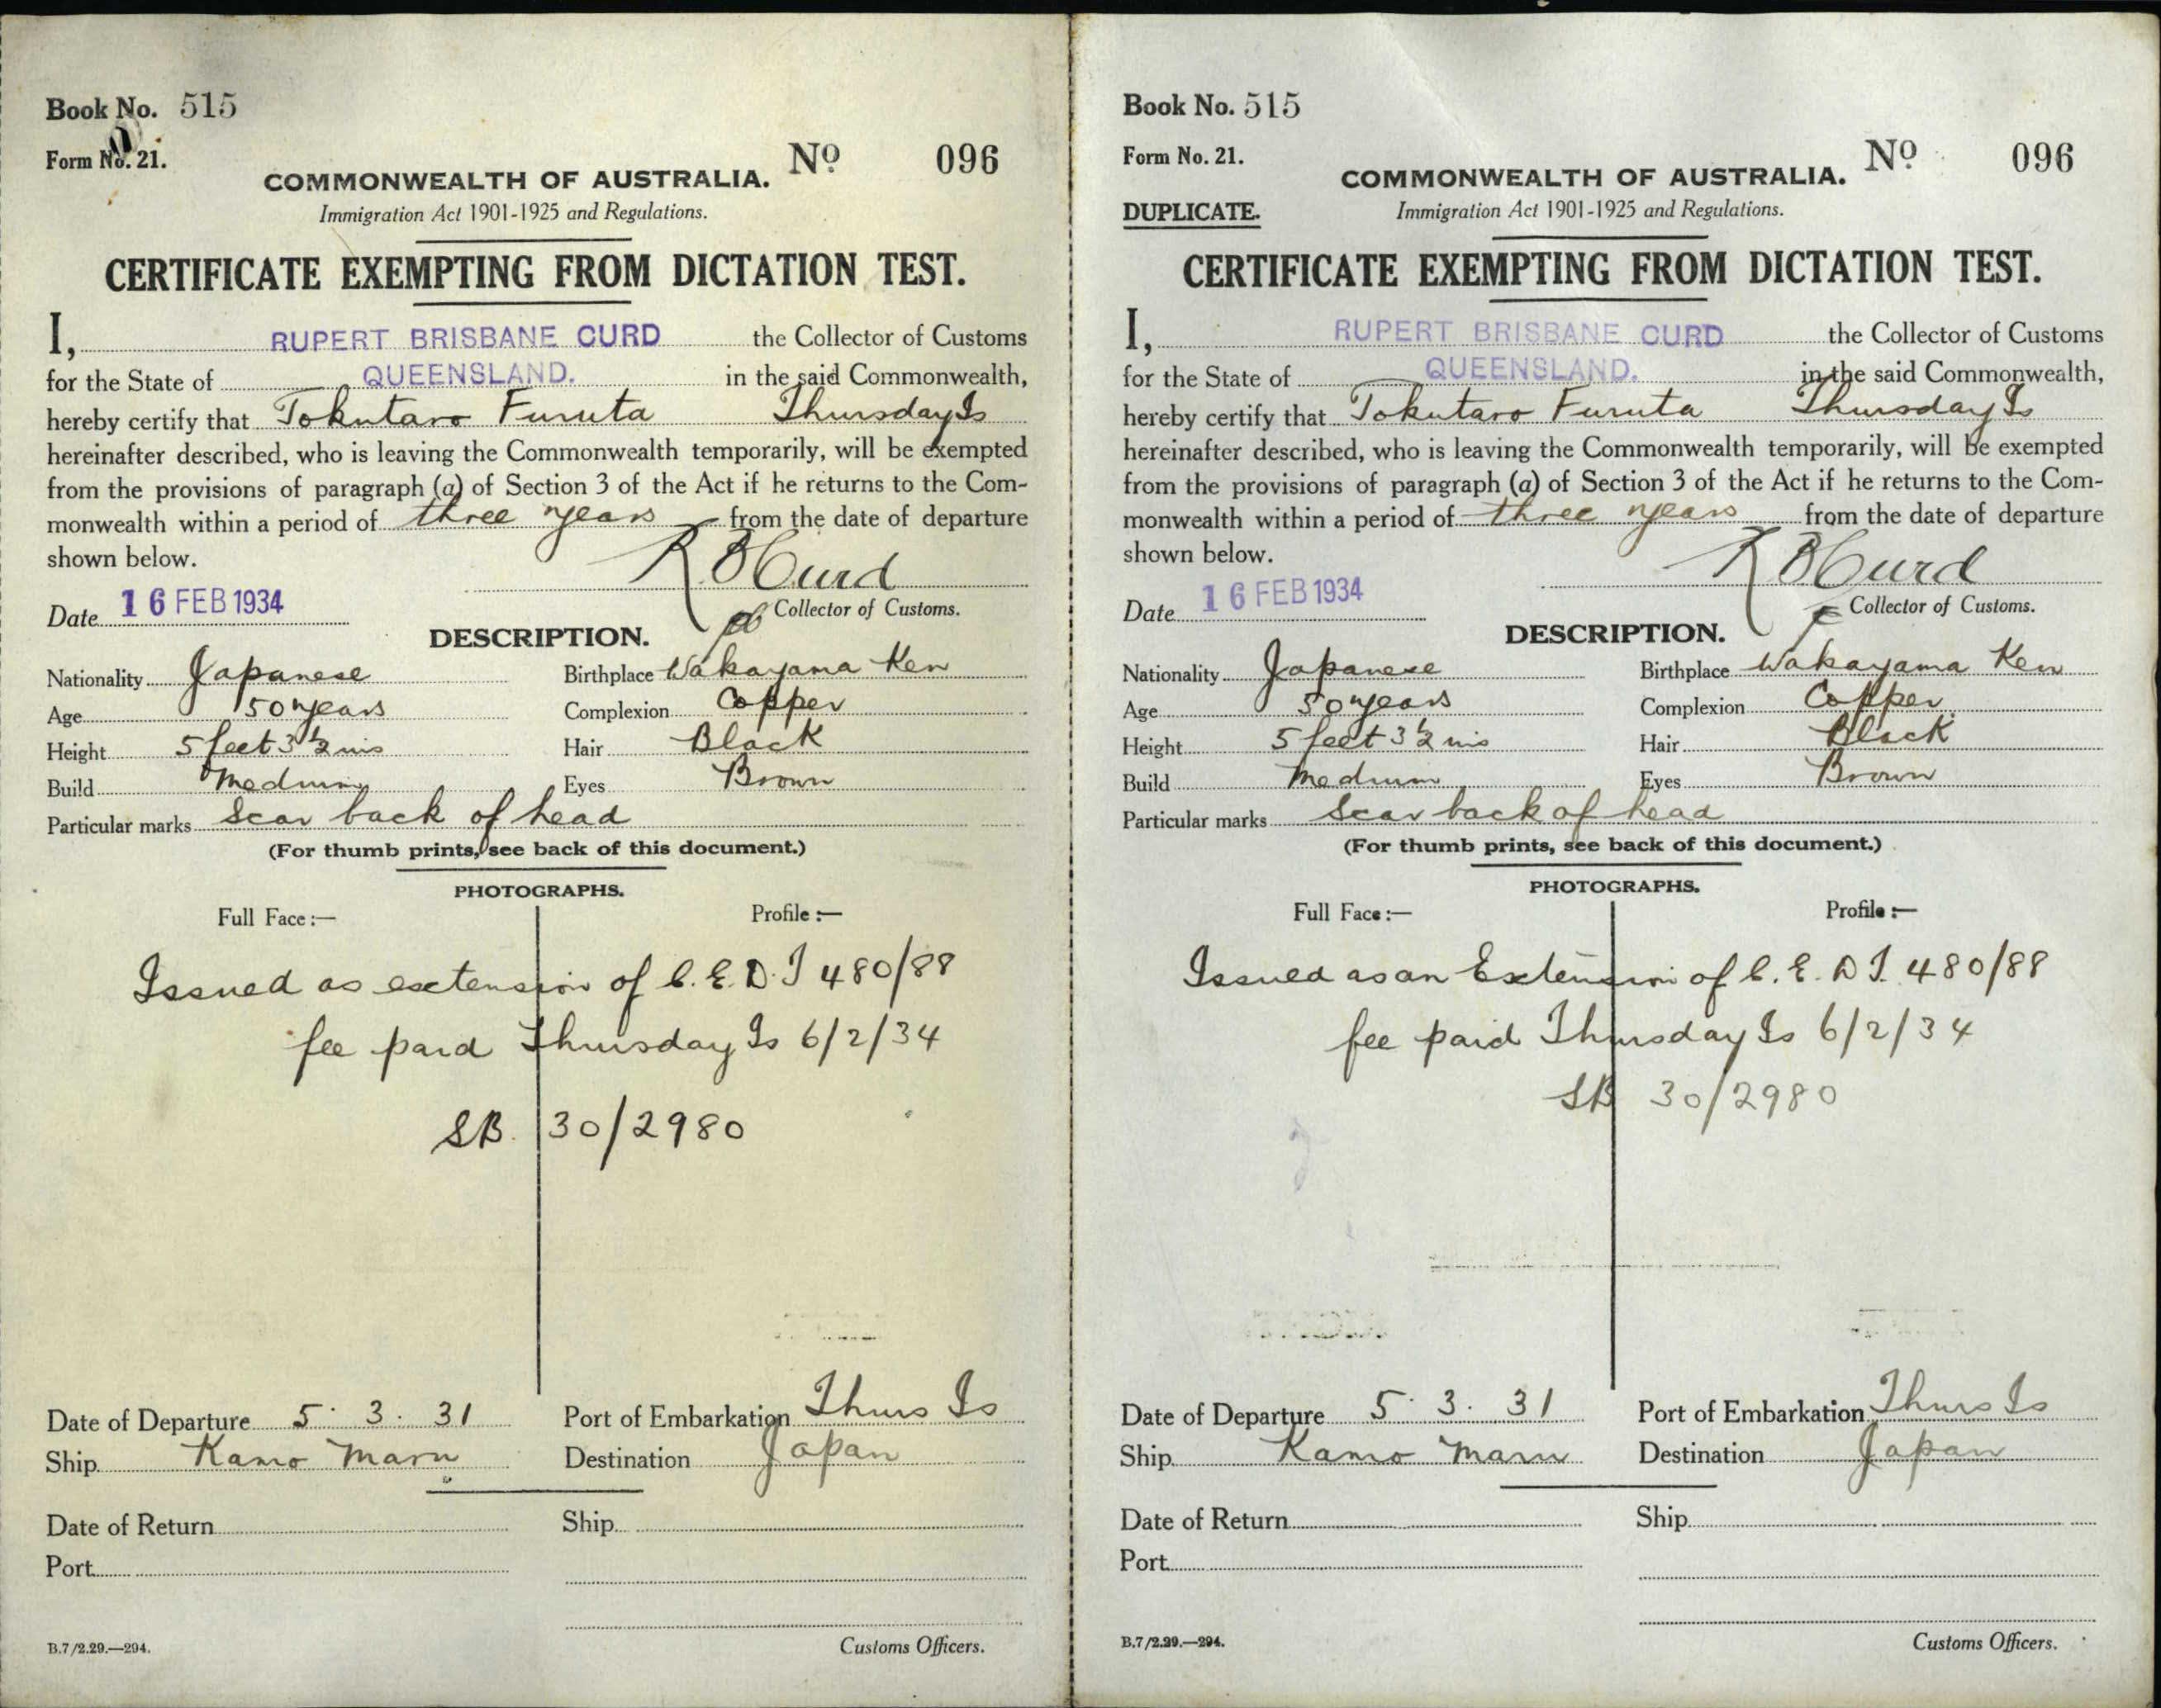 Book No. 515
Form No. 21.
COMMONWEALTH OF AUSTRALIA. No 096
Immigration Act 1901-1925 and Regulations.
CERTIFICATE EXEMPTING FROM DICTATION TEST.
I, RUPERT BRISBANE CURD the Collector of Customs
for the State of QUEENSLAND. in the said Commonwealth,
hereby certify that Tokutaro Furuta Thursday Is
hereinafter described, who is leaving the Commonwealth temporarily, will be exempted
from the provisions of paragraph (a) of Section 3 of the Act if he returns to the Com-
monwealth within a period of three years from the date of departure
shown below.
R B Curd
Date 16 FEB 1934 Collector of Customs.
DESCRIPTION.
Nationality Japanese Birthplace Wakayama Ken
Age 50 years Complexion Copper
Height 5 feet 3 1/2 ins Hair Black
Build Medium Eyes Brown
Particular marks Scar back of head
(For thumb prints, see back of this document.)
PHOTOGRAPHS.
Full Face :— Profile :—
Issued as extension of C.E.D.T 480/88
fee paid Thursday Is 6/2/34
SB. 30/2980
Date of Departure 5. 3. 31 Port of Embarkation Thurs Is
Ship Kamo Maru Destination Japan
Date of Return Ship
Port
B.7/2.29.—294. Customs Officers.
Book No. 515
Form No. 21.
COMMONWEALTH OF AUSTRALIA. No 096
DUPLICATE. Immigration Act 1901-1925 and Regulations.
CERTIFICATE EXEMPTING FROM DICTATION TEST.
I, RUPERT BRISBANE CURD the Collector of Customs
for the State of QUEENSLAND. in the said Commonwealth,
hereby certify that Tokutaro Furuta Thursday Is
hereinafter described, who is leaving the Commonwealth temporarily, will be exempted
from the provisions of paragraph (a) of Section 3 of the Act if he returns to the Com-
monwealth within a period of three years from the date of departure
shown below.
R B Curd
Date 16 FEB 1934 Collector of Customs.
DESCRIPTION.
Nationality Japanese Birthplace Wakayama Ken
Age 50 years Complexion Copper
Height 5 feet 3 1/2 ins Hair Black
Build Medium Eyes Brown
Particular marks Scar back of head
(For thumb prints, see back of this document.)
PHOTOGRAPHS.
Full Face :— Profile :—
Issued as an Extension of C.E.D T. 480/88
fee paid Thursday Is 6/2/34
SB 30/2980
Date of Departure 5. 3. 31 Port of Embarkation Thurs Is
Ship Kamo Maru Destination Japan
Date of Return Ship
Port
B.7/2.29.—294. Customs Officers.